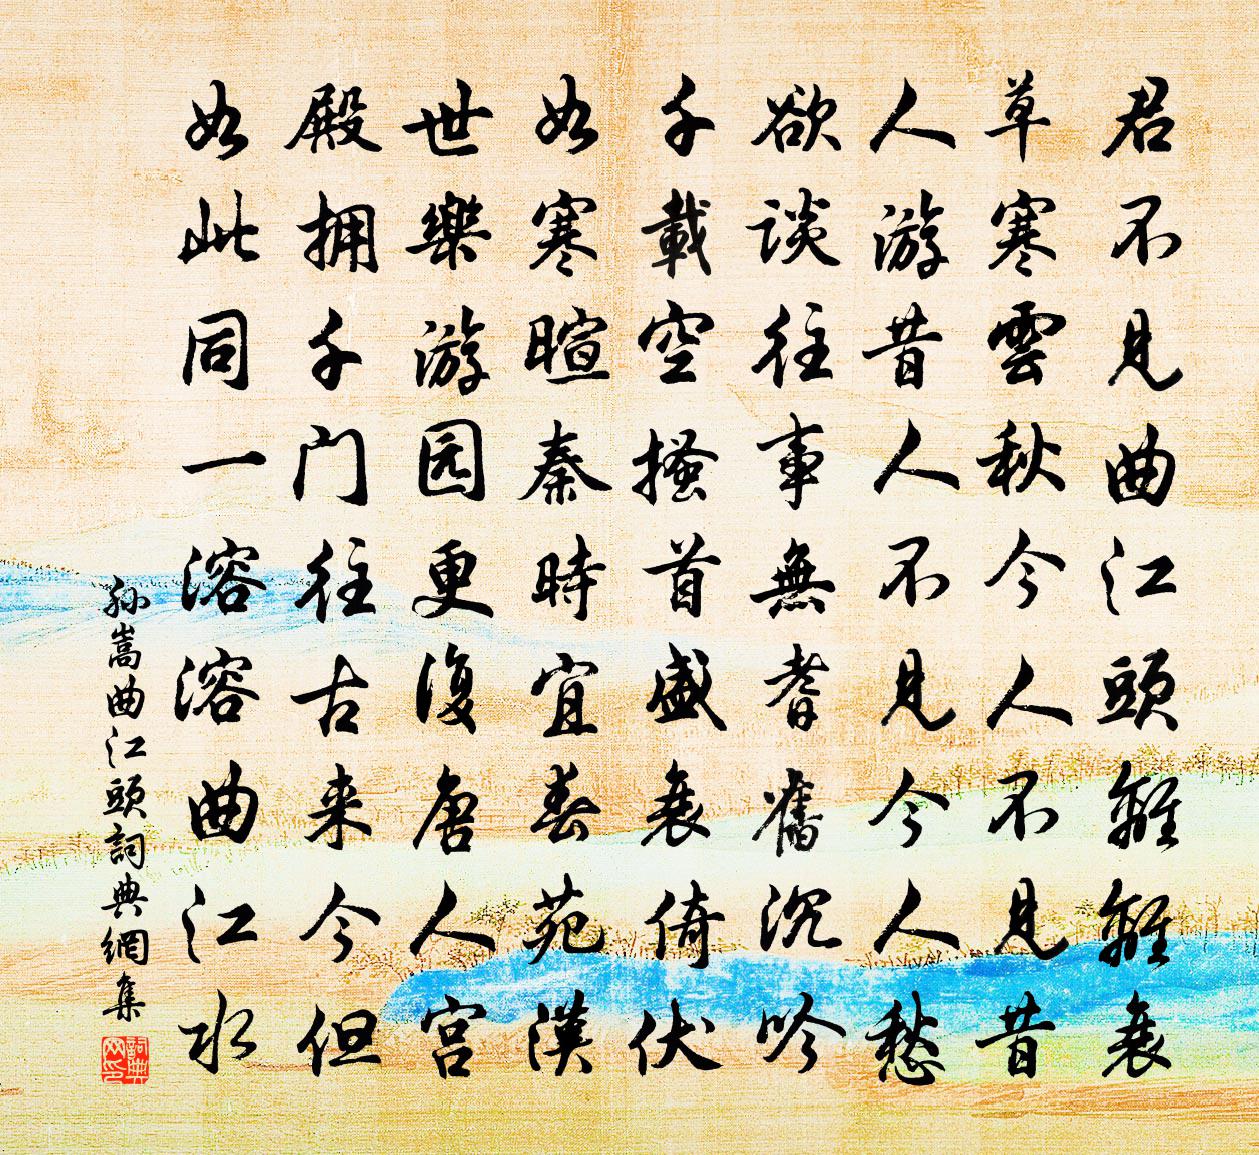 君不见曲江頭離離衰
草寒雲秋今人不见昔
人游昔人不见今人愁
欲談往事無耆舊沉吟
千載空搔首盛衰倚伏
如寒暄秦時宜春苑漢
世樂游园更復唐人宫
殿拥千门往古来今但
如此同一溶溶曲江水
孙嵩曲江頭詞典網集
詞典网印